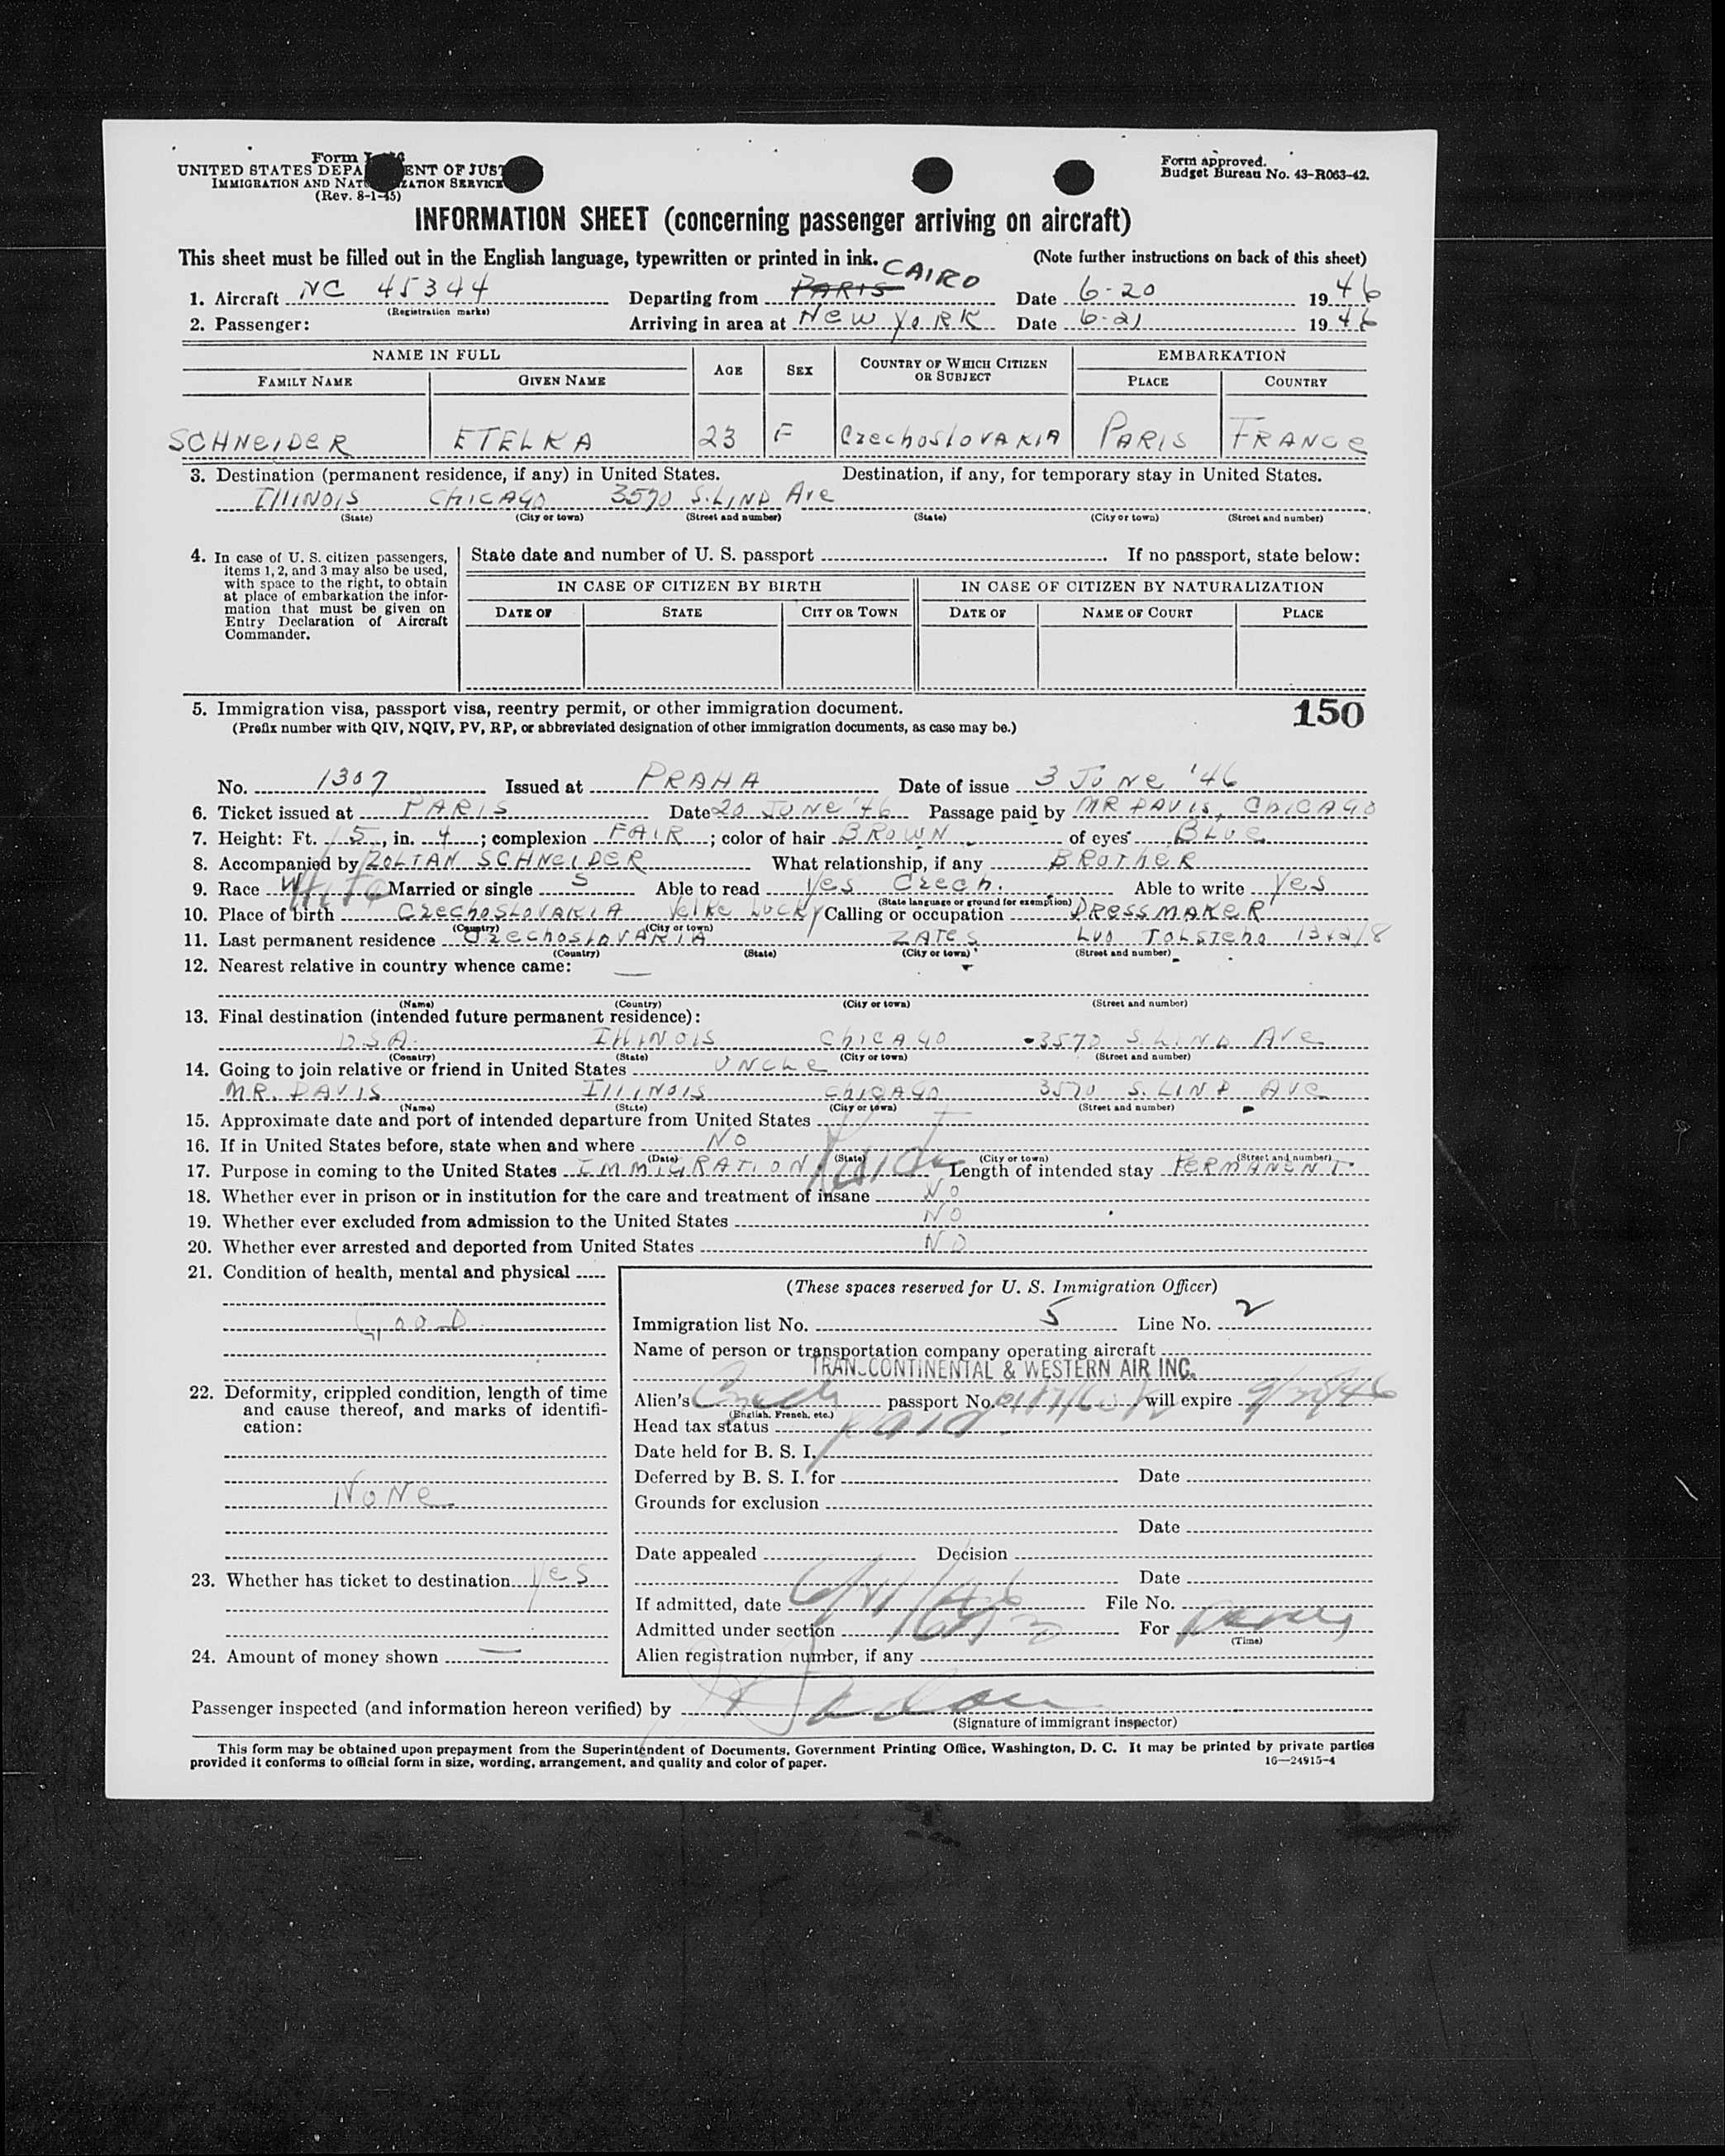 Form I-466
UNITED STATES DEPARTMENT OF JUSTICE
IMMIGRATION AND NATURALIZATION SERVICE
(Rev. 8-1-45)
Form approved.
Budget Bureau No. 43-R063-42.
INFORMATION SHEET (concerning passenger arriving on aircraft)
This sheet must be filled out in the English language, typewritten or printed in ink. (Note further instructions on back of this sheet)
1. Aircraft NC 45344 Departing from PARIS CAIRO Date 6-20 1946
(Registration marks)
2. Passenger: Arriving in area at NeW YORK Date 6-21 1946
NAME IN FULL AGE SEX COUNTRY OF WHICH CITIZEN OR SUBJECT EMBARKATION
FAMILY NAME GIVEN NAME PLACE COUNTRY
SCHNeIDeR ETELKA 23 F CzechoslovAKIA PARIS FRANCe
3. Destination (permanent residence, if any) in United States. Destination, if any, for temporary stay in United States.
IllINOIS CHICAGO 3570 S. LIND Ave
(State) (City or town) (Street and number) (State) (City or town) (Street and number)
4. In case of U. S. citizen passengers, items 1, 2, and 3 may also be used, with space to the right, to obtain at place of embarkation the information that must be given on Entry Declaration of Aircraft Commander.
State date and number of U. S. passport If no passport, state below:
IN CASE OF CITIZEN BY BIRTH IN CASE OF CITIZEN BY NATURALIZATION
DATE OF STATE CITY OR TOWN DATE OF NAME OF COURT PLACE
5. Immigration visa, passport visa, reentry permit, or other immigration document. 150
(Prefix number with QIV, NQIV, PV, RP, or abbreviated designation of other immigration documents, as case may be.)
No. 1307 Issued at PRAHA Date of issue 3 JuNe '46
6. Ticket issued at PARIS Date 20 JUNe '46 Passage paid by MR DAVIS, ChICAGO
7. Height: Ft. 5, in. 4; complexion FAIR; color of hair BROWN of eyes BLUe
8. Accompanied by ZOLTAN SCHNeIDeR What relationship, if any BROTheR
9. Race White Married or single S Able to read Yes Czech. Able to write Yes
(State language or ground for exemption)
10. Place of birth CzechoSLOVAKIA Velke LUCKY Calling or occupation DResSMAKeR
(Country) (City or town)
11. Last permanent residence CzechoslovAKIA ZATeS TOLSTeho
(Country) (State) (City or town) (Street and number)
12. Nearest relative in country whence came: —
(Name) (Country) (City or town) (Street and number)
13. Final destination (intended future permanent residence):
U.S.A. IllINOIS ChICAGO 3570 S. LIND Ave
(Country) (State) (City or town) (Street and number)
14. Going to join relative or friend in United States UNCLe
MR. DAVIS IllINOIS ChICAGO 3570 S. LIND AVe
(Name) (State) (City or town) (Street and number)
15. Approximate date and port of intended departure from United States
16. If in United States before, state when and where NO
(Date) (State) (City or town) (Street and number)
17. Purpose in coming to the United States IMMIGRATION Reside Length of intended stay PeRMANENT.
18. Whether ever in prison or in institution for the care and treatment of insane NO
19. Whether ever excluded from admission to the United States NO
20. Whether ever arrested and deported from United States NO
21. Condition of health, mental and physical
GooD
22. Deformity, crippled condition, length of time and cause thereof, and marks of identification:
NoNe
23. Whether has ticket to destination Yes
24. Amount of money shown —
(These spaces reserved for U. S. Immigration Officer)
Immigration list No. 5 Line No. 2
Name of person or transportation company operating aircraft
TRANSCONTINENTAL & WESTERN AIR INC.
Alien's Czech passport No. will expire
(English, French, etc.)
Head tax status paid
Date held for B. S. I.
Deferred by B. S. I. for Date
Grounds for exclusion
Date
Date appealed Decision
Date
If admitted, date 6/21/46 File No.
Admitted under section For
(Time)
Alien registration number, if any
Passenger inspected (and information hereon verified) by
(Signature of immigrant inspector)
This form may be obtained upon prepayment from the Superintendent of Documents, Government Printing Office, Washington, D. C. It may be printed by private parties
provided it conforms to official form in size, wording, arrangement, and quality and color of paper. 16—24915-4